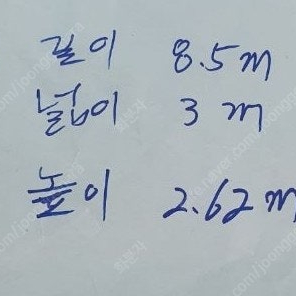 길이 8.5m
넓이 3m
높이 2.62m